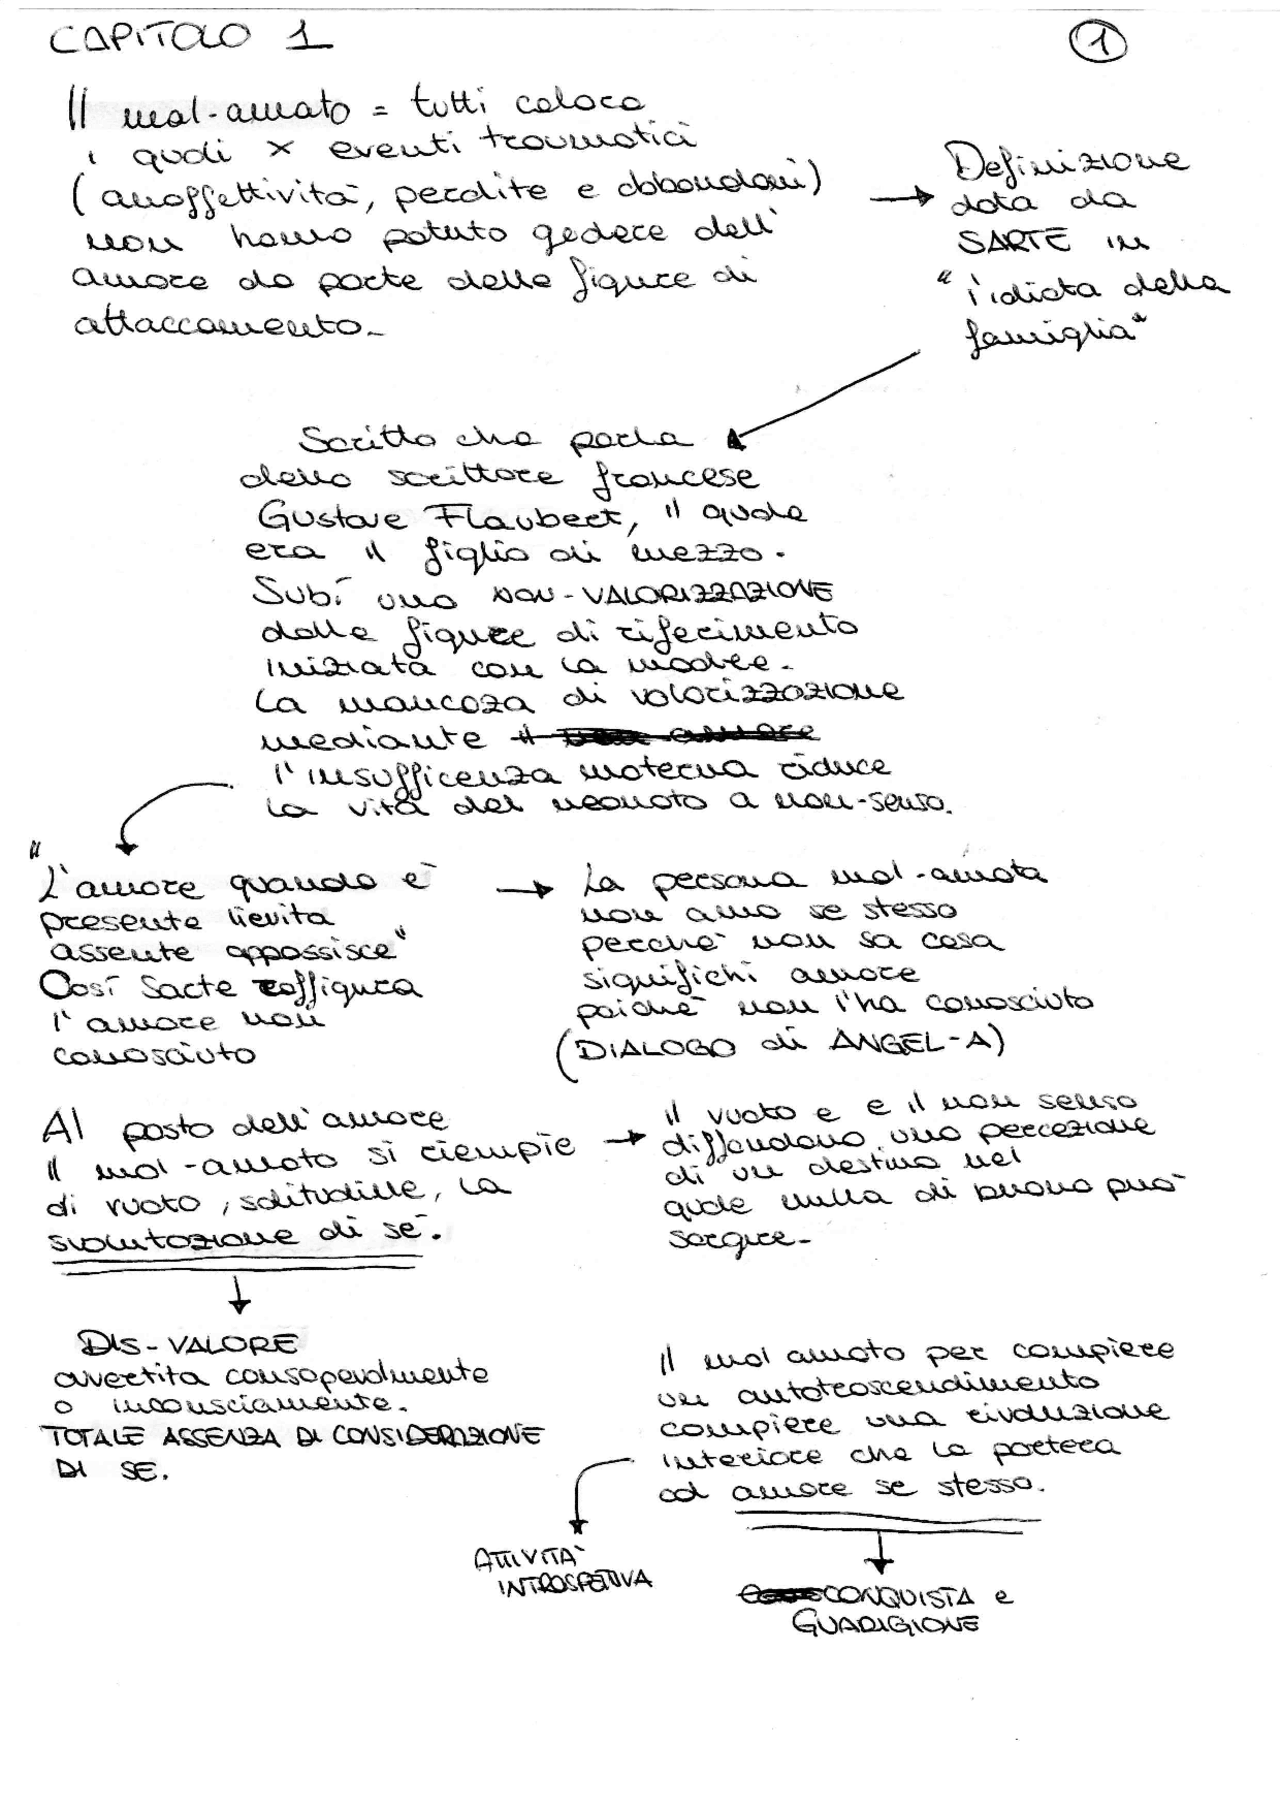 CAPITOLO 1
1
Il mal-amato = tutti coloro
i quali x eventi traumatici
(anaffettività, perdite e abbandoni)
non hanno potuto godere dell'
amore da parte delle figure di
attaccamento.
→ Definizione
data da
SARTE in
"l'idiota della
famiglia"
Scritto che parla
dello scrittore francese
Gustave Flaubert, il quale
era il figlio di mezzo.
Subì una NON-VALORIZZAZIONE
dalle figure di riferimento
iniziata con la madre.
La mancaza di valorizzazione
mediante
l'insufficenza materna riduce
la vita del neonato a non-senso.
"L'amore quando è
presente lievita
assente appassisce"
Così Sarte raffigura
l'amore non
conosciuto
→ La persona mal-amata
non ama se stesso
perchè non sa cosa
significhi amore
poichè non l'ha conosciuto
(DIALOGO di ANGEL-A)
Al posto dell'amore
il mal-amato si riempie
di vuoto, solitudine, la
svalutazione di sé.
→ il vuoto e e il non senso
diffondono una percezione
di un destino nel
quale nulla di buono può
sorgere.
DIS-VALORE
avvertita consapevolmente
o inconsciamente.
TOTALE ASSENZA DI CONSIDERAZIONE
DI SE.
Il mal amato per compiere
un autotrascendimento
compiere una rivoluzione
interiore che lo porterà
ad amare se stesso.
ATTIVITÀ
INTROSPETTIVA
CONQUISTA e
GUARIGIONE